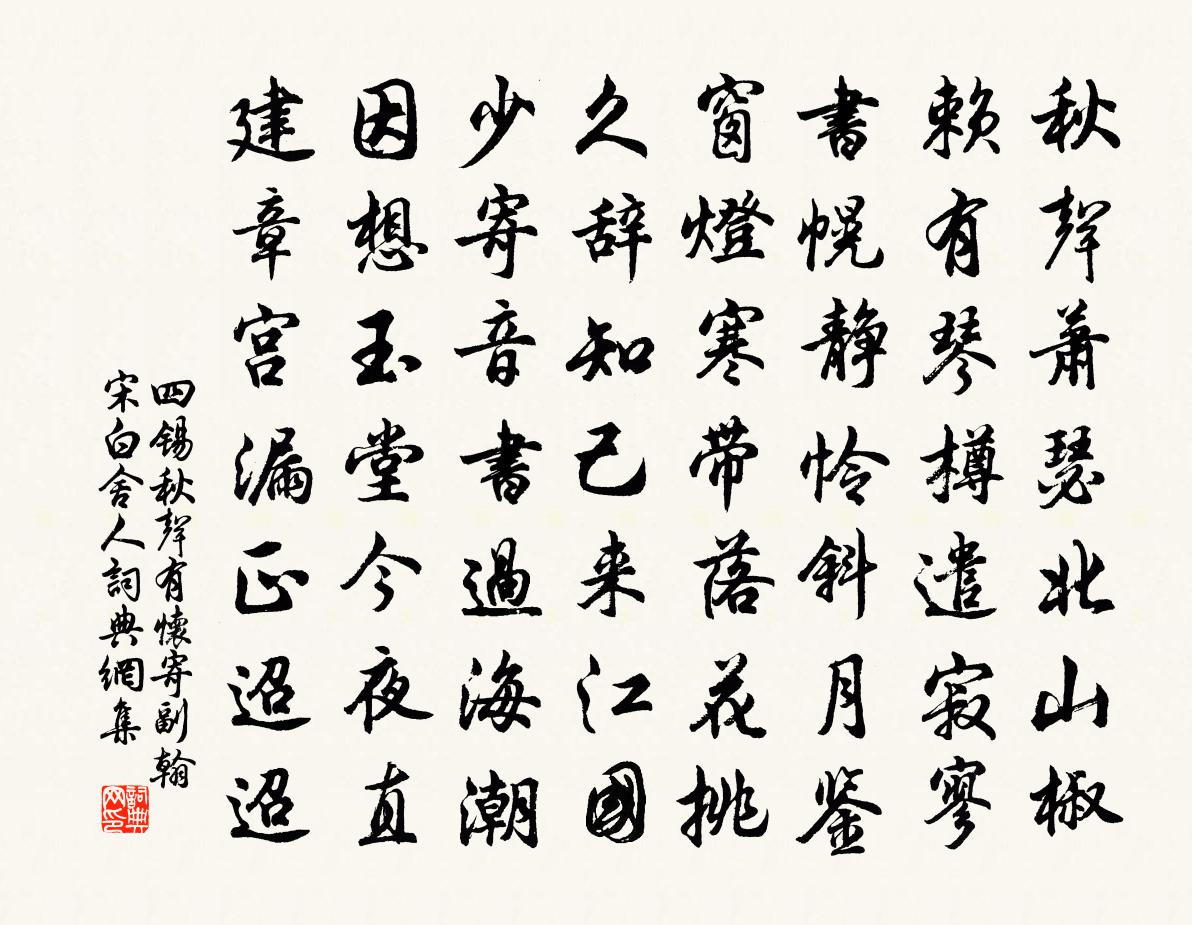 秋聲蕭瑟北山椒
賴有琴樽遣寂寥
書幌静怜斜月鉴
窗燈寒带落花挑
久辞知己来江國
少寄音書過海潮
因想玉堂今夜直
建章宫漏正迢迢
四锡秋聲有懷寄副翰
宋白舍人詞典網集
詞典网印